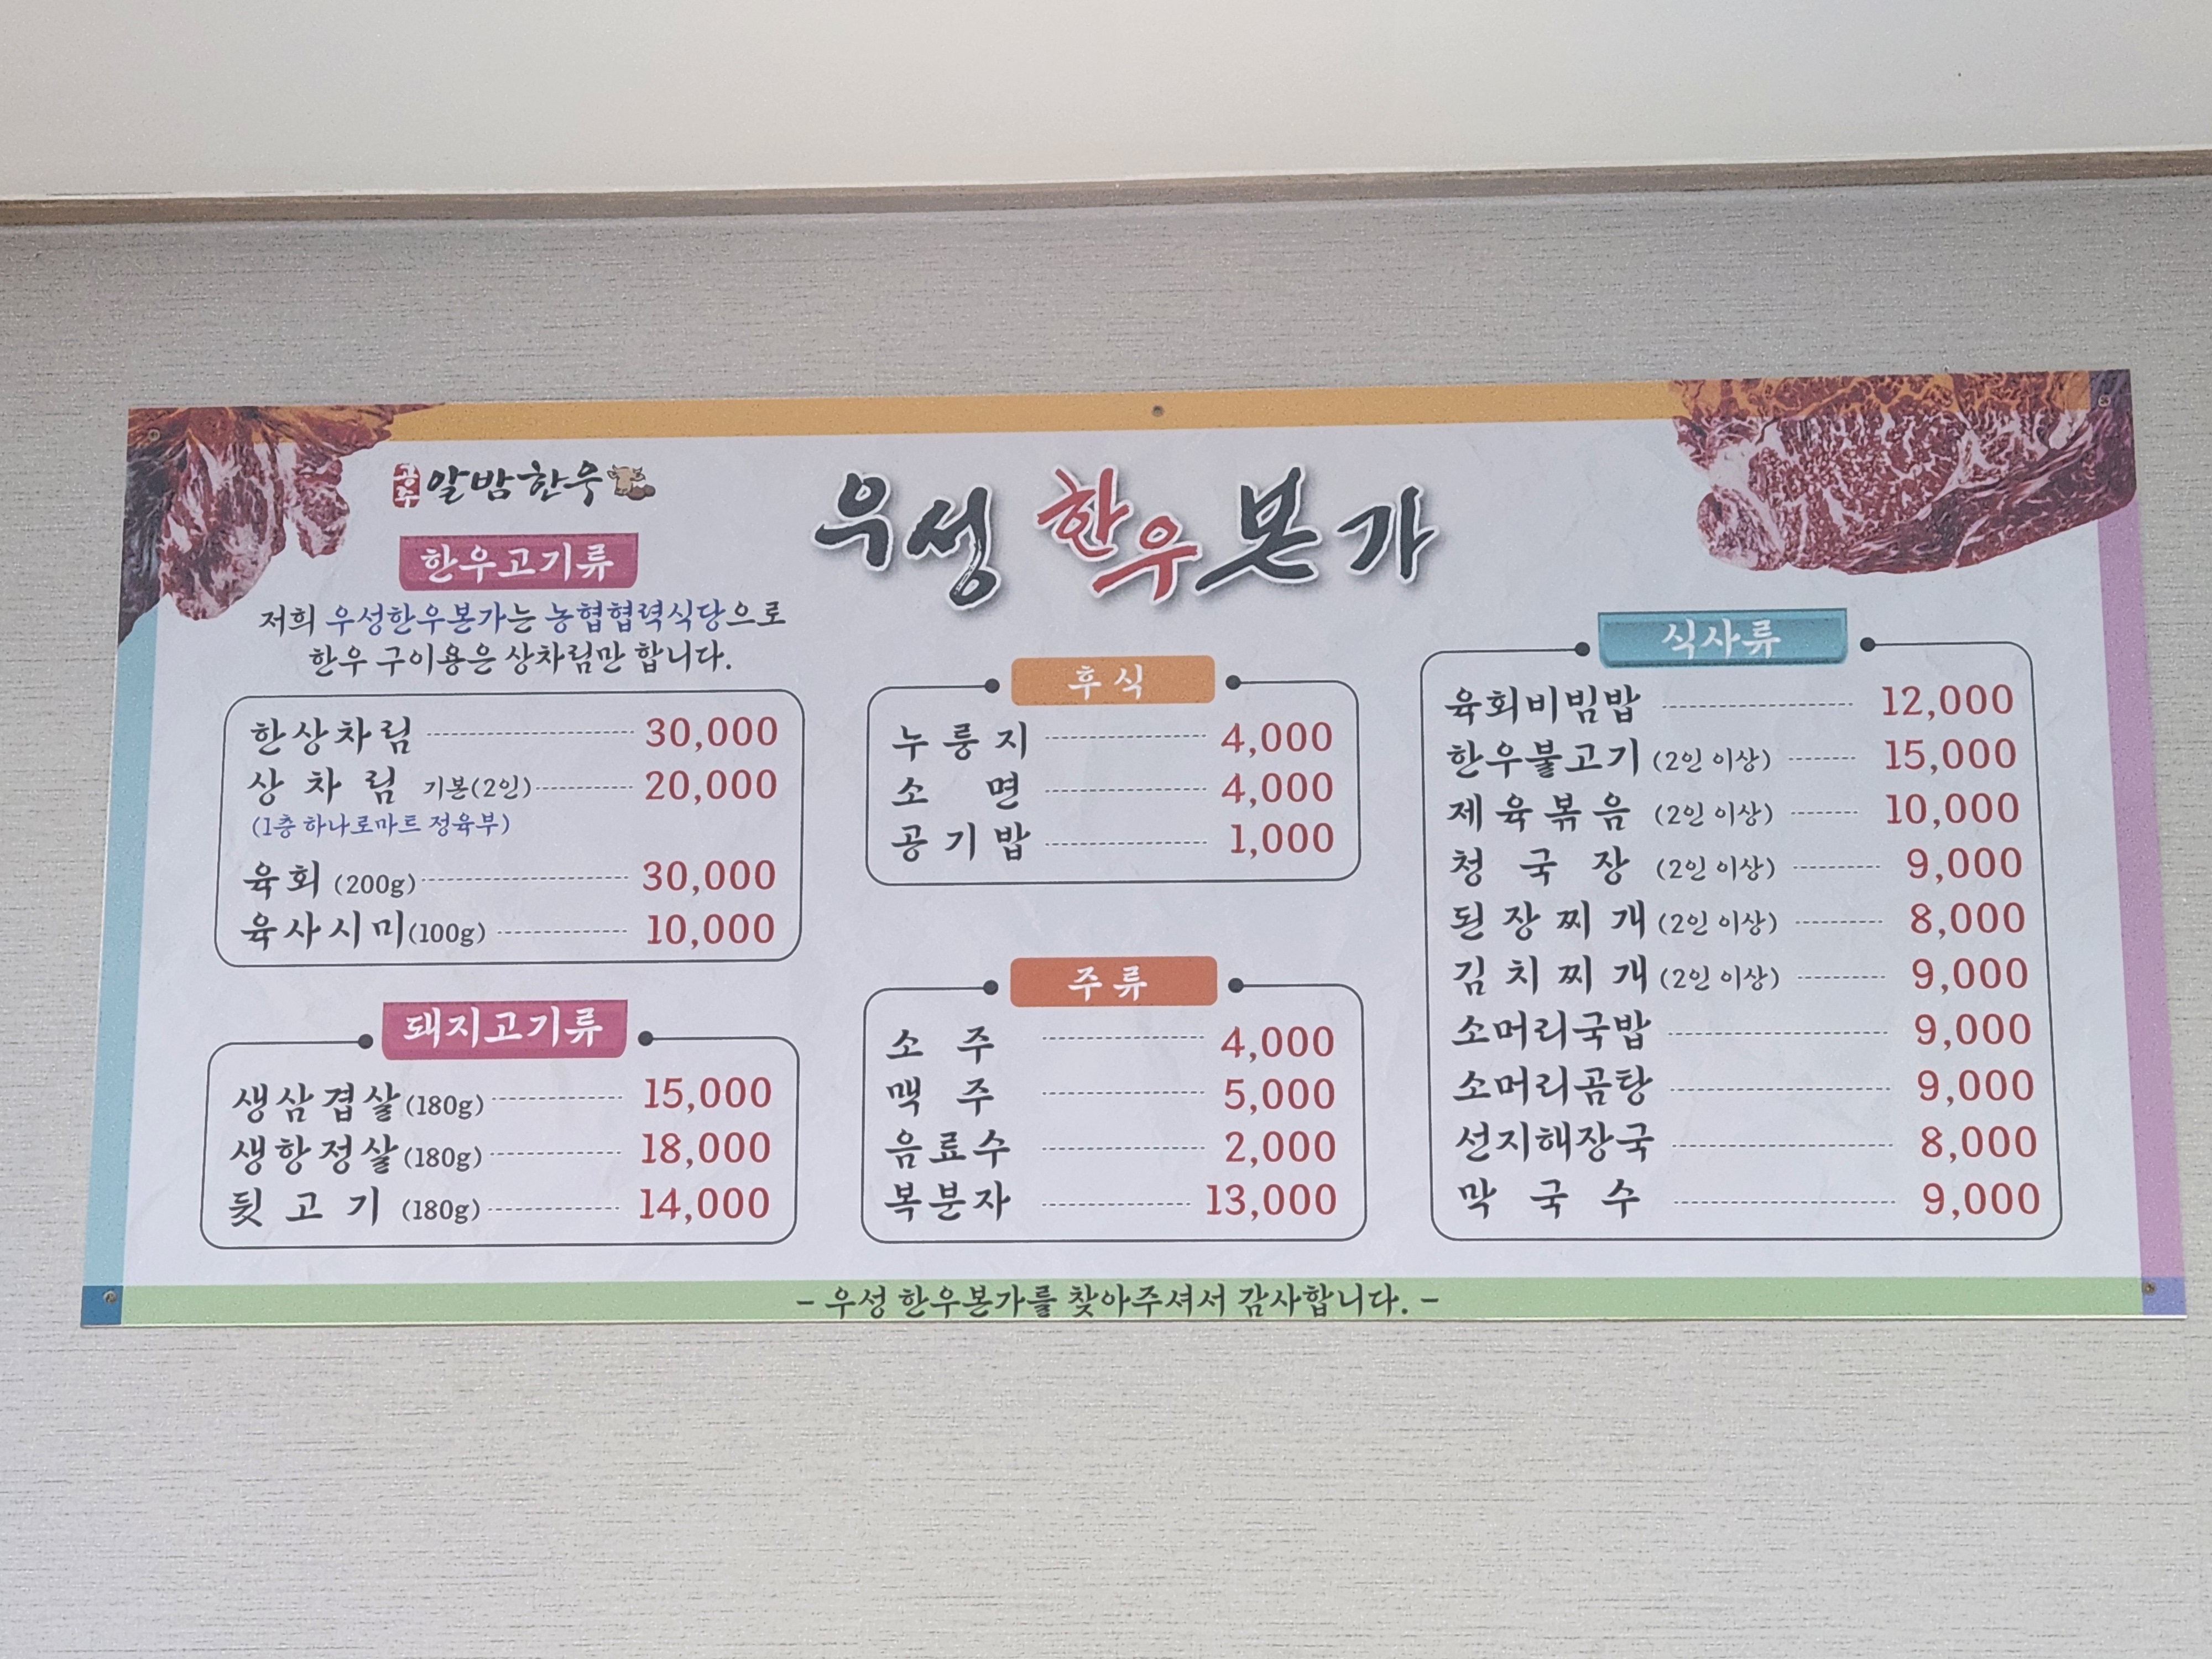 공주 알밤한우
우성 한우본가
한우고기류
저희 우성한우본가는 농협협력식당으로
한우 구이용은 상차림만 합니다.
한상차림 30,000
상차림 기본(2인) 20,000
(1층 하나로마트 정육부)
육회 (200g) 30,000
육사시미(100g) 10,000
돼지고기류
생삼겹살(180g) 15,000
생항정살(180g) 18,000
뒷고기 (180g) 14,000
후식
누룽지 4,000
소면 4,000
공기밥 1,000
주류
소주 4,000
맥주 5,000
음료수 2,000
복분자 13,000
식사류
육회비빔밥 12,000
한우불고기 (2인 이상) 15,000
제육볶음 (2인 이상) 10,000
청국장 (2인 이상) 9,000
된장찌개 (2인 이상) 8,000
김치찌개 (2인 이상) 9,000
소머리국밥 9,000
소머리곰탕 9,000
선지해장국 8,000
막국수 9,000
- 우성 한우본가를 찾아주셔서 감사합니다. -